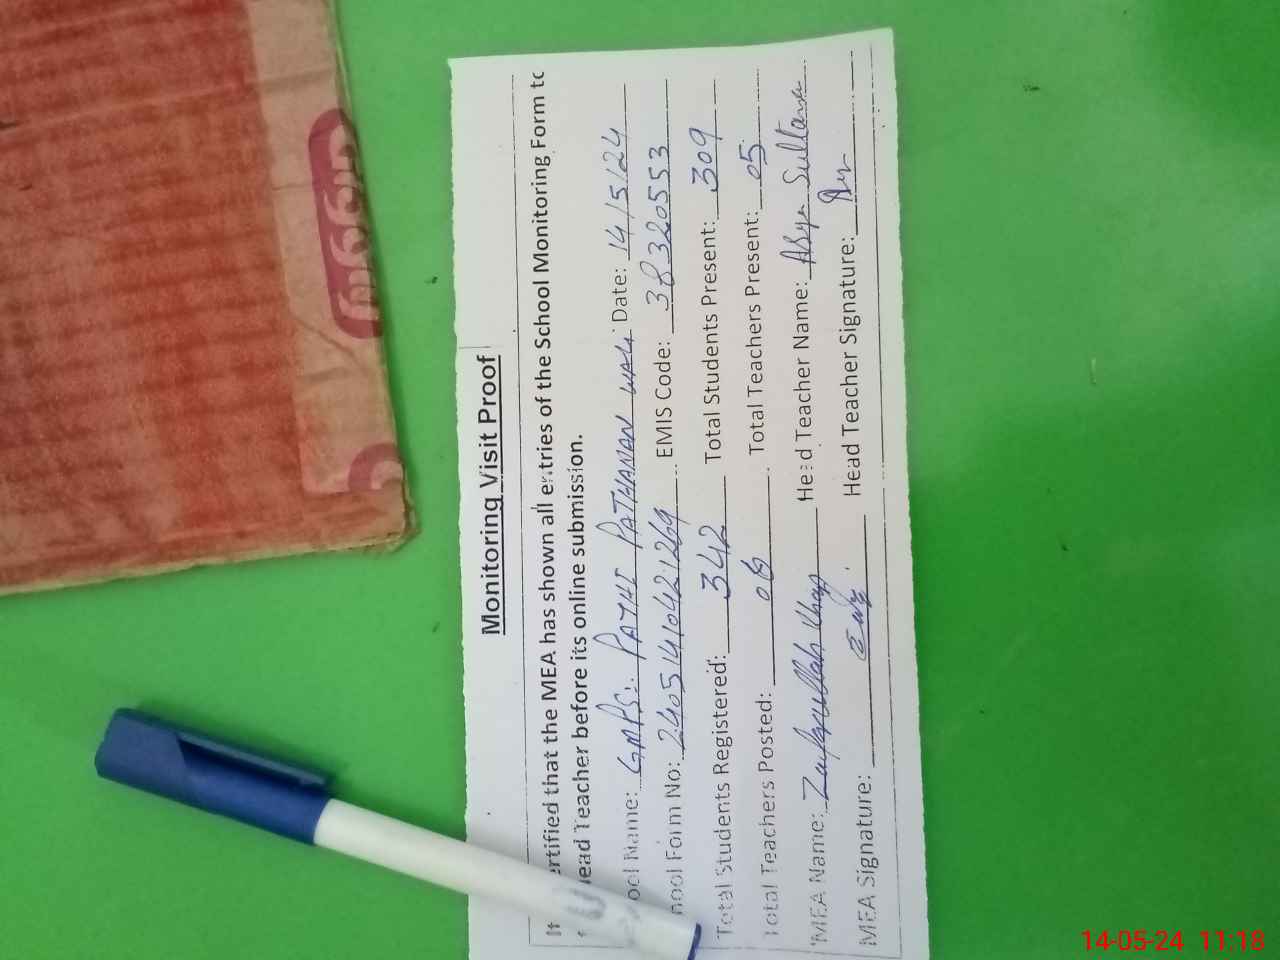 Monitoring Visit Proof
It ertified that the MEA has shown all entries of the School Monitoring Form to
ead Teacher before its online submission.
ool Name: GMPS: PATHI PATHANAN WALI Date: 14/5/24
hool Form No: 24051410421269 EMIS Code: 38320553
Total Students Registered: 342 Total Students Present: 309
Total Teachers Posted: 06 Total Teachers Present: 05
MEA Name: Zafarullah Khan Head Teacher Name: Sultana
MEA Signature: Head Teacher Signature:
14-05-24 11:18